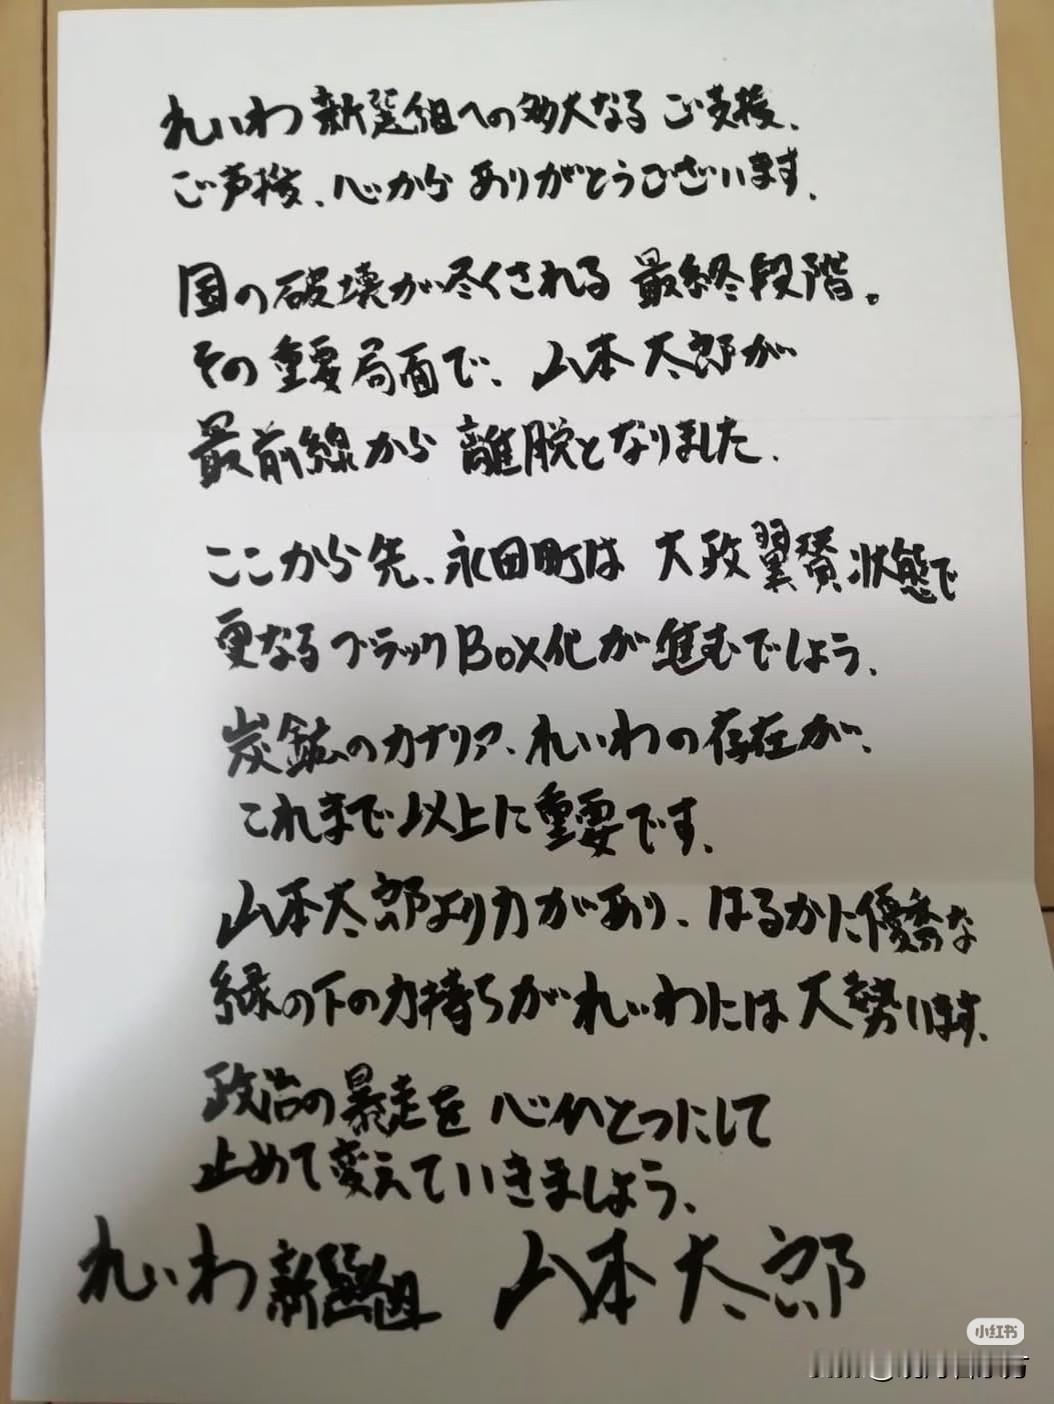 れいわ新選組への多大なるご支援、
ご声援、心からありがとうございます。
国の破壊が尽くされる最終段階。
その重要局面で、山本太郎が
最前線から離脱となりました。
ここから先、永田町は大政翼賛状態で
更なるブラックBox化が進むでしょう。
炭鉱のカナリア、れいわの存在が、
これまで以上に重要です。
山本太郎より力があり、はるかに優秀な
縁の下の力持ちがれいわには大勢います。
政治の暴走を心ひとつにして
止めて変えていきましょう。
れいわ新選組 山本太郎
小红书